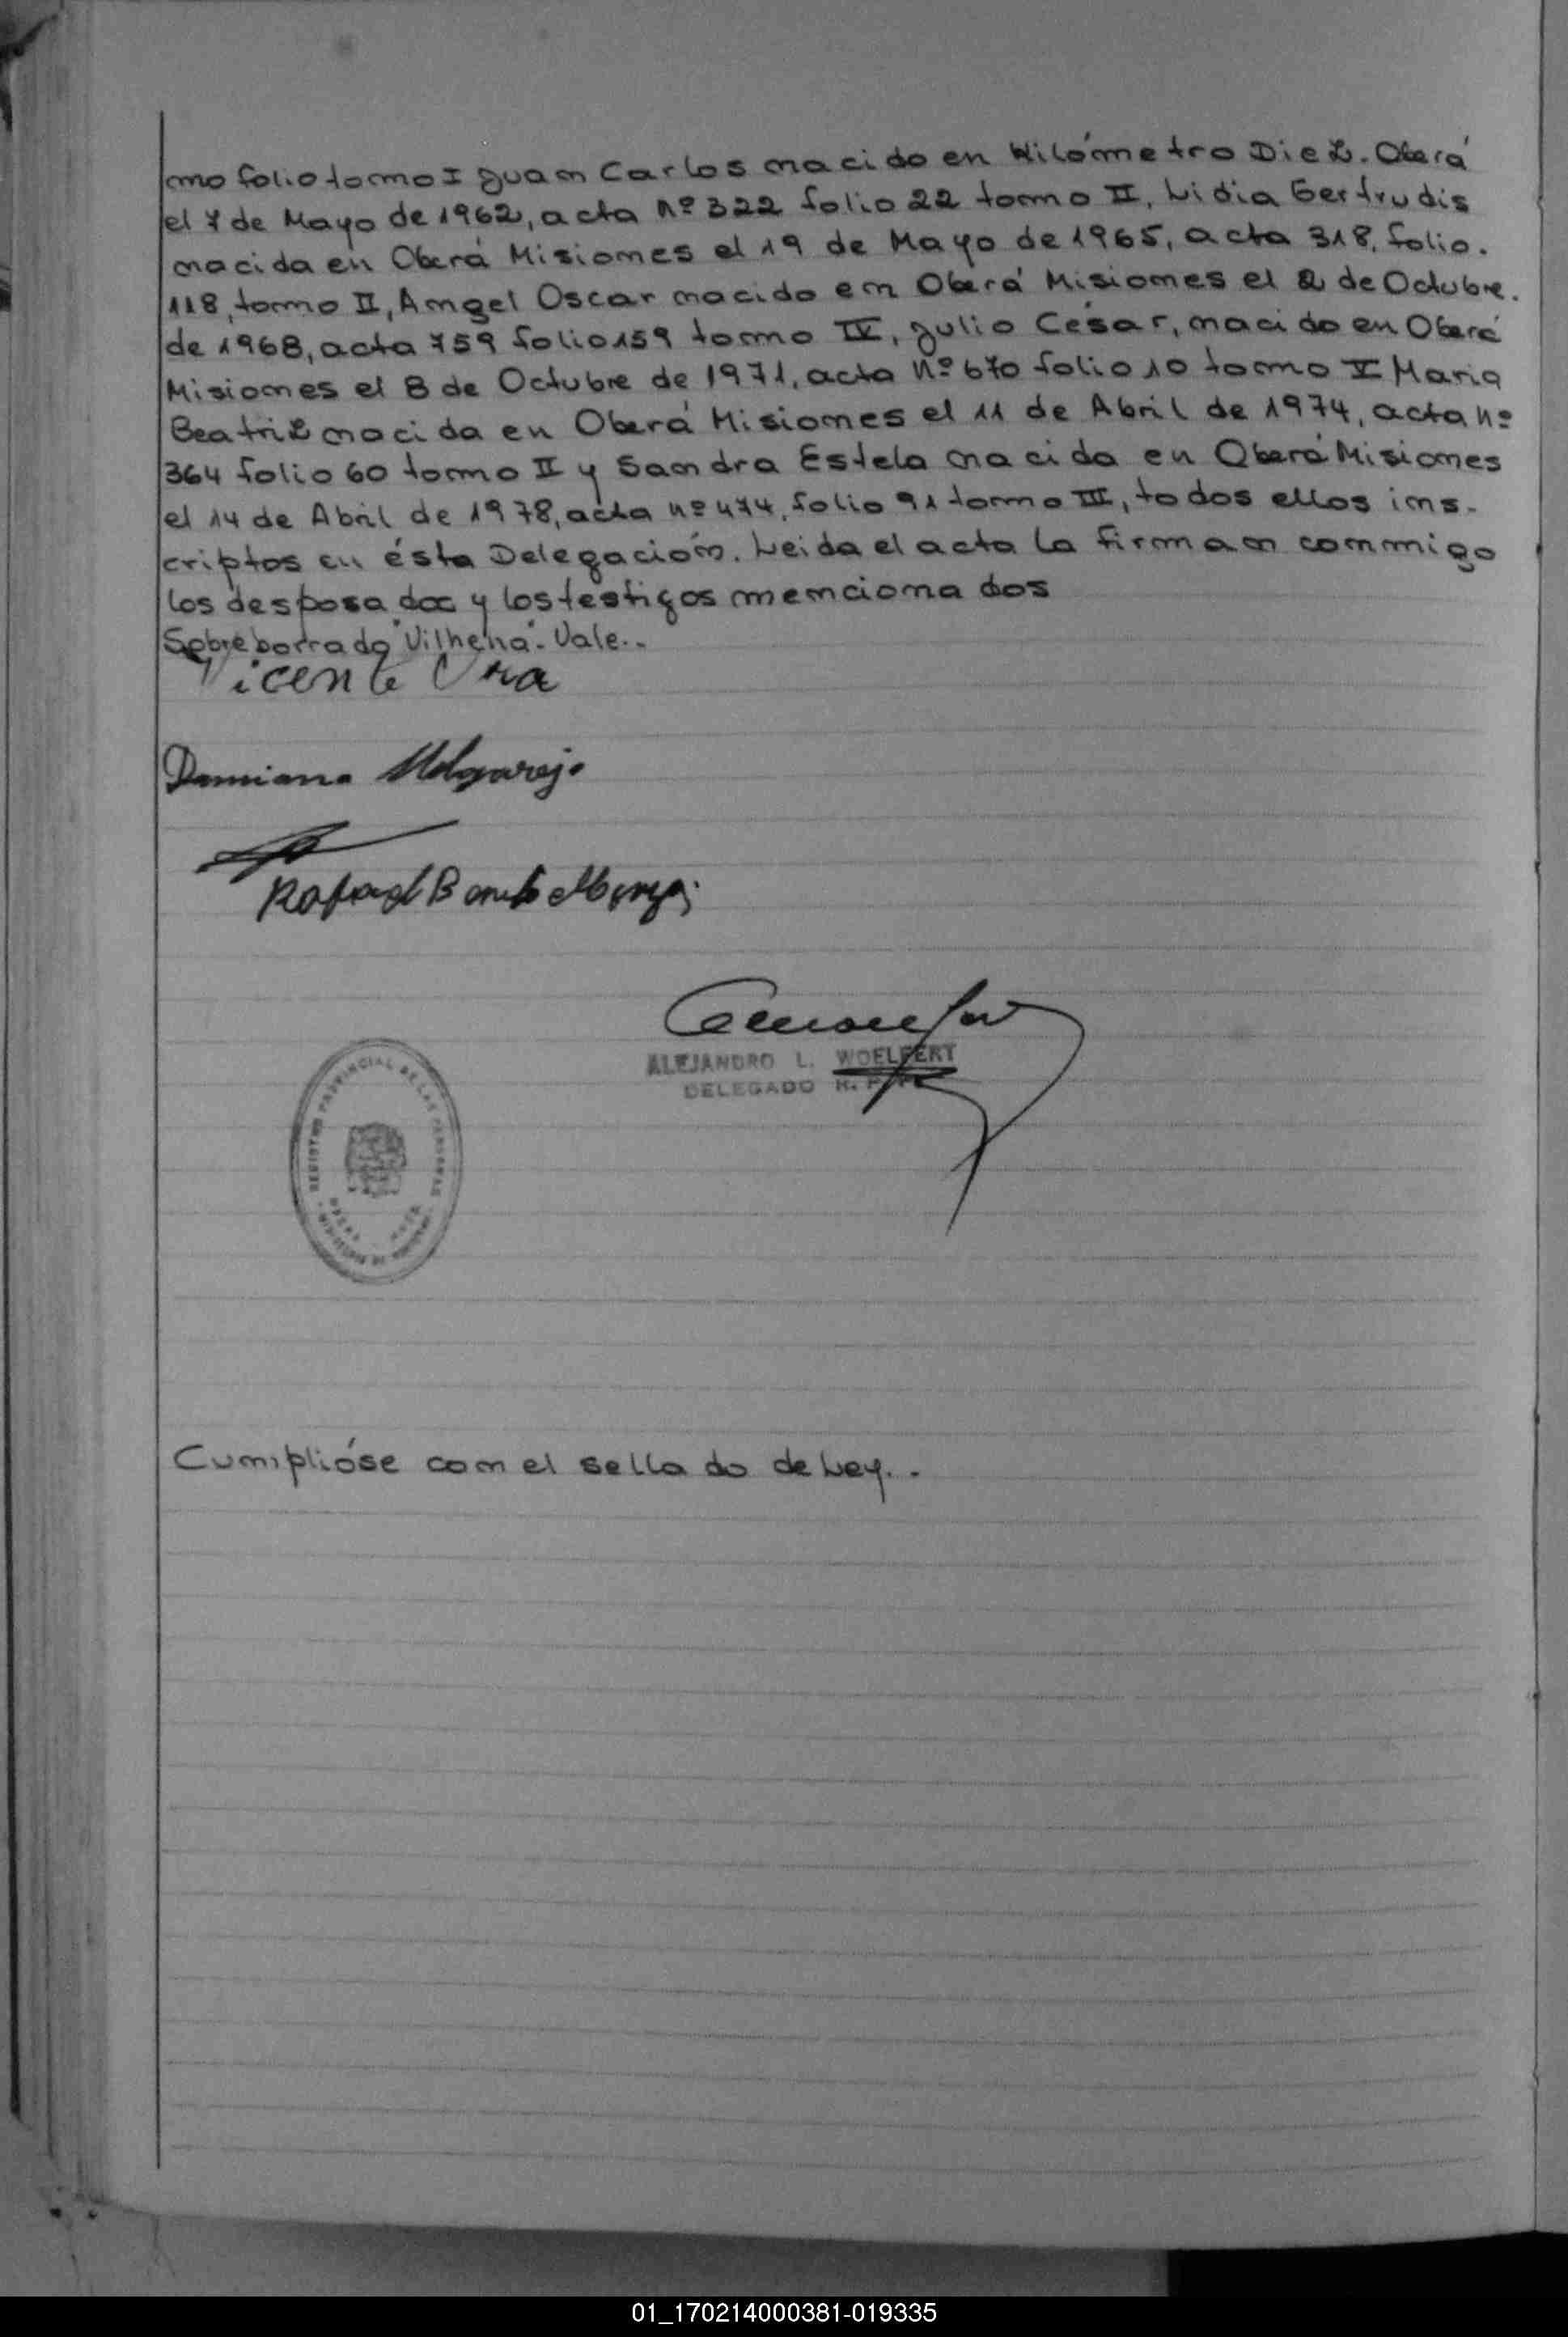 mo folio tomo I Juan Carlos nacido en Kilómetro Diez. Oberá
el 7 de Mayo de 1962, acta Nº 322 folio 22 tomo II, Lidia Gertrudis
nacida en Oberá Misiones el 19 de Mayo de 1965, acta 318, folio.
118, tomo II, Angel Oscar nacido en Oberá Misiones el 2 de Octubre.
de 1968, acta 759 folio 159 tomo IV, Julio César, nacido en Oberá
Misiones el 8 de Octubre de 1971, acta Nº 670 folio 10 tomo V Maria
Beatriz nacida en Oberá Misiones el 11 de Abril de 1974, acta Nº
364 folio 60 tomo II y Sandra Estela nacida en Oberá Misiones
el 14 de Abril de 1978, acta Nº 474, folio 91 tomo III, todos ellos ins-
criptos en ésta Delegación. Leida el acta la firman conmigo
los desposados y los testigos mencionados
Sobreborrado "Vilhena". Vale..
Vicente
Damiana Melgarejo
Rafael
ALEJANDRO L. WOELFERT
DELEGADO R. P. P.
REGISTRO PROVINCIAL DE LAS PERSONAS
Cumplióse con el sellado de Ley..
01_170214000381-019335